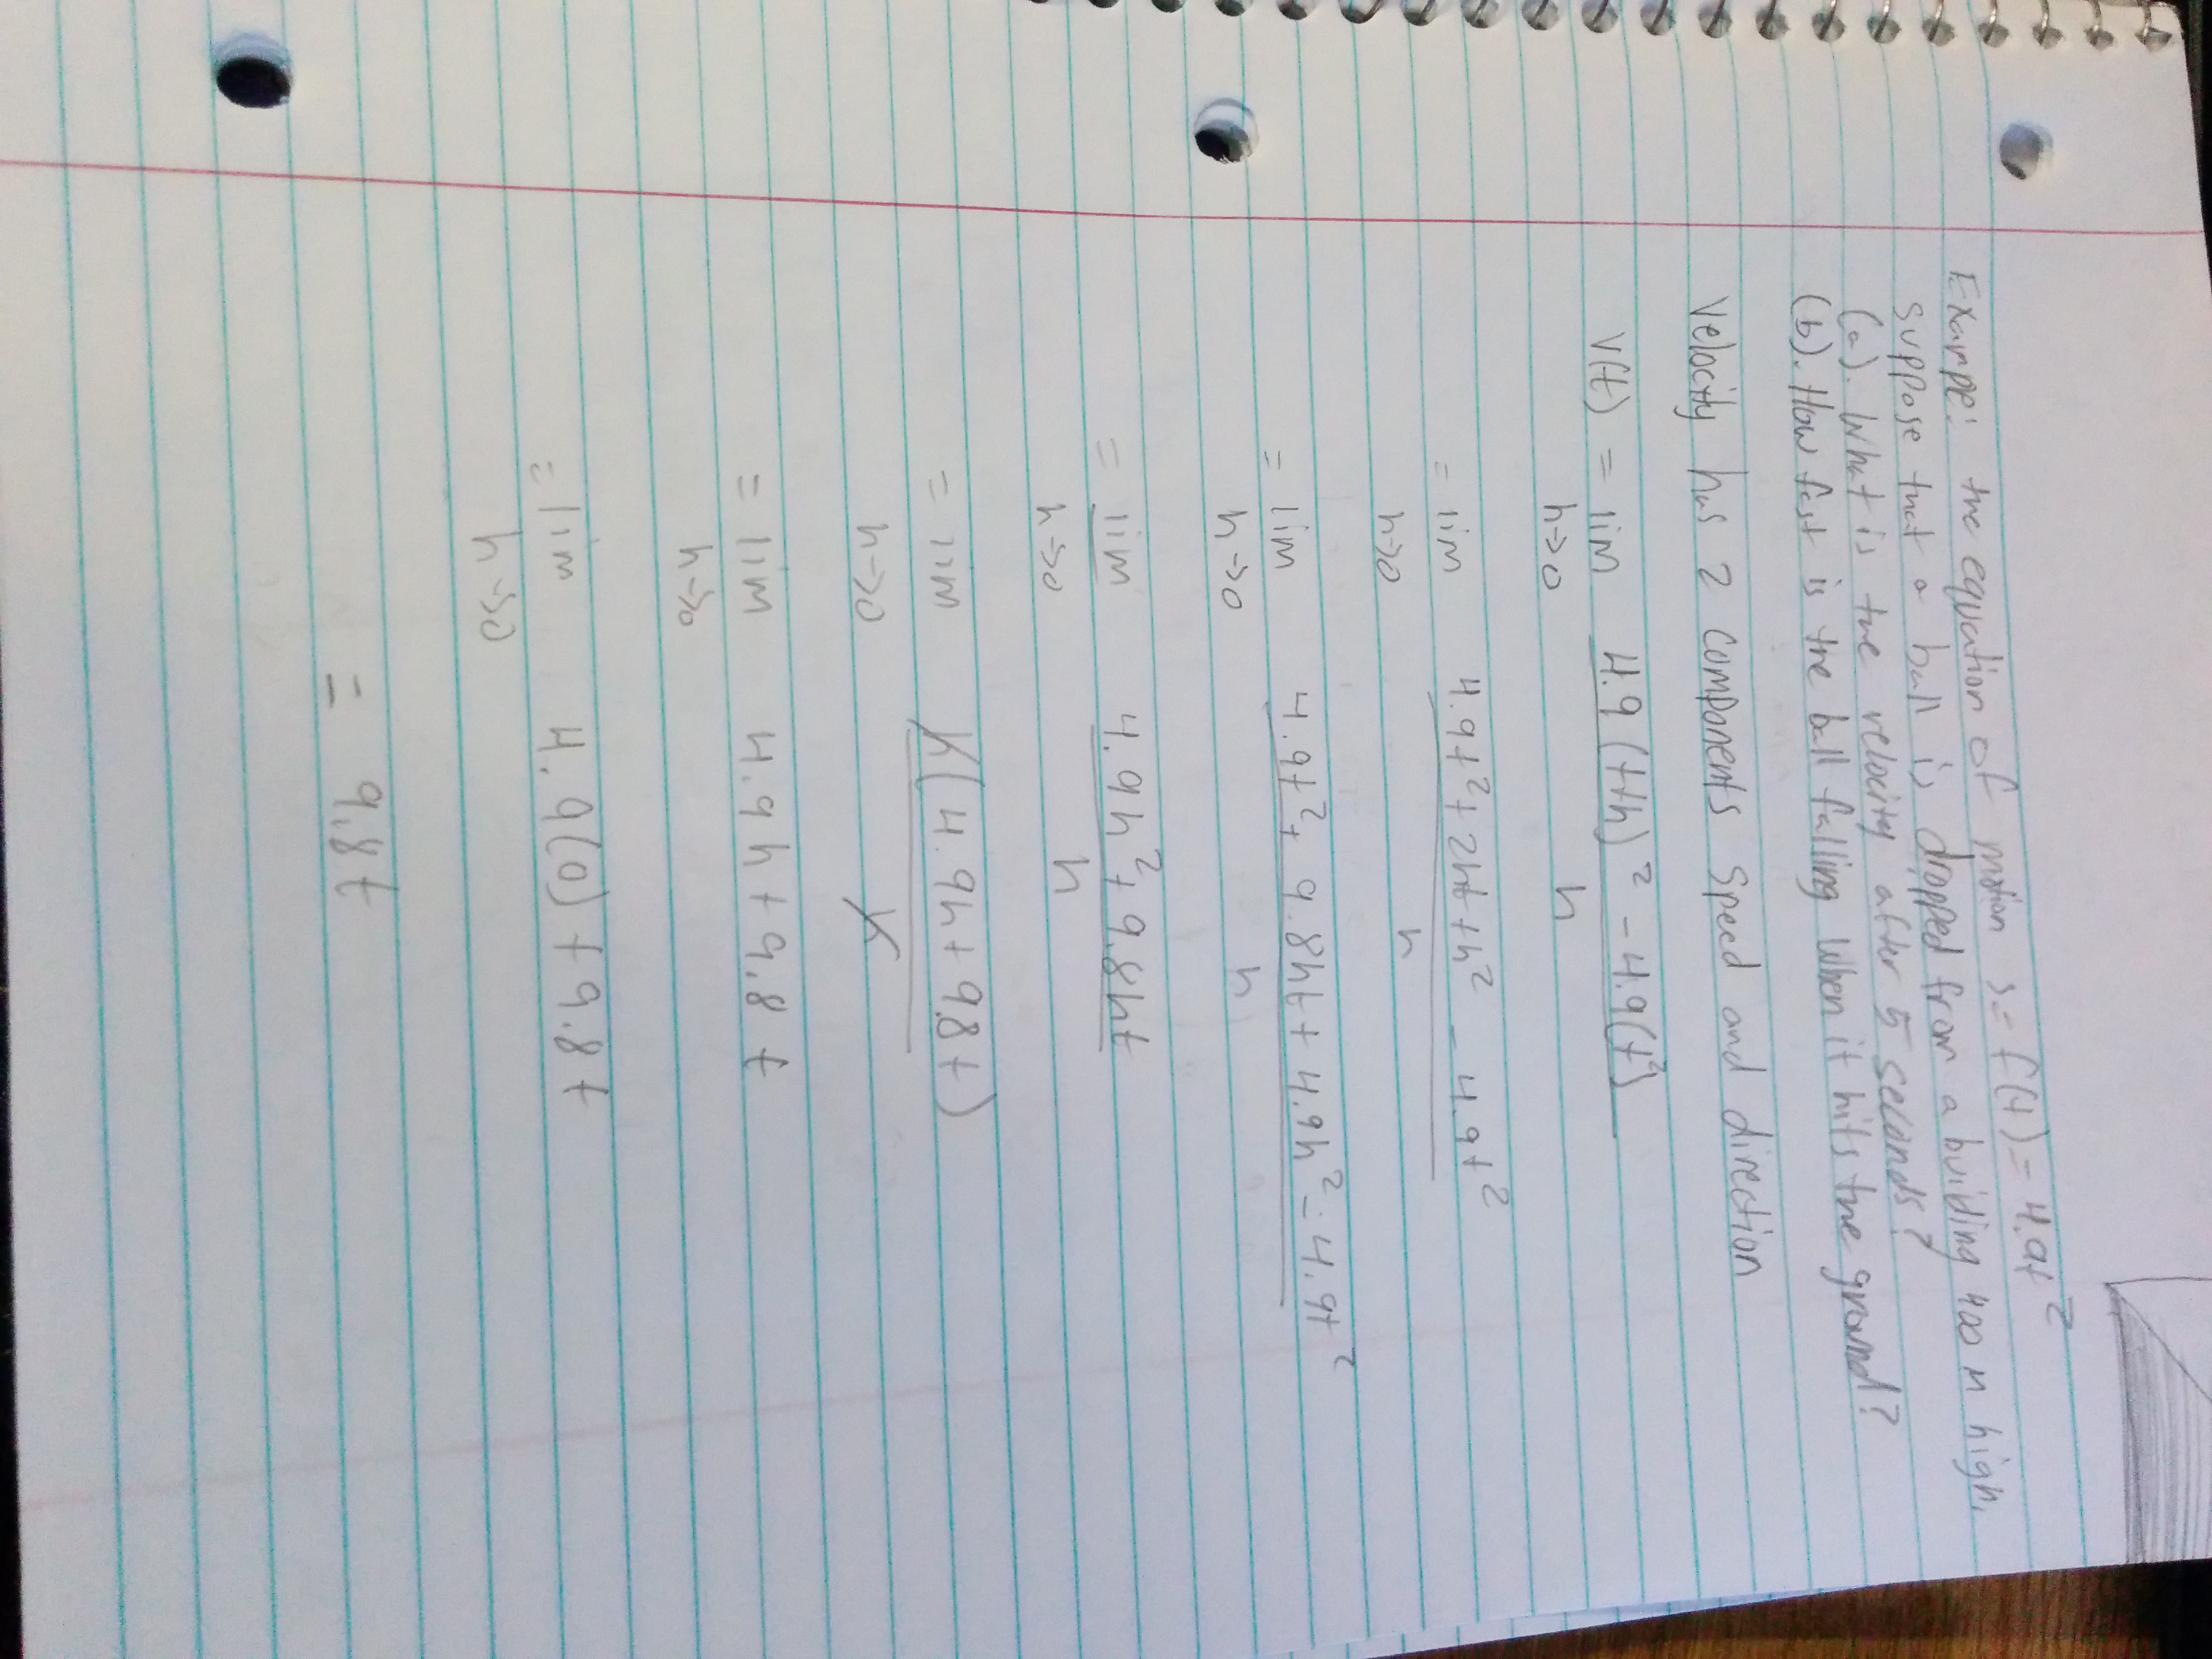 Example: the equation of motion s = f(t) = 4.9t²
suppose that a ball is dropped from a building 400 m high,
(a). What is the velocity after 5 seconds?
(b). How fast is the ball falling when it hits the ground?
Velocity has 2 components speed and direction
V(t) = lim 4.9(t+h)² - 4.9(t²)
h→0 h
= lim 4.9t² + 2ht + h² - 4.9t²
h→0 h
= lim 4.9t² + 9.8ht + 4.9h² - 4.9t²
h→0 h
= lim 4.9h² + 9.8ht
h→0 h
= lim h(4.9h + 9.8t)
h→0 h
= lim 4.9h + 9.8t
h→0
= lim 4.9(0) + 9.8t
h→0
= 9.8t